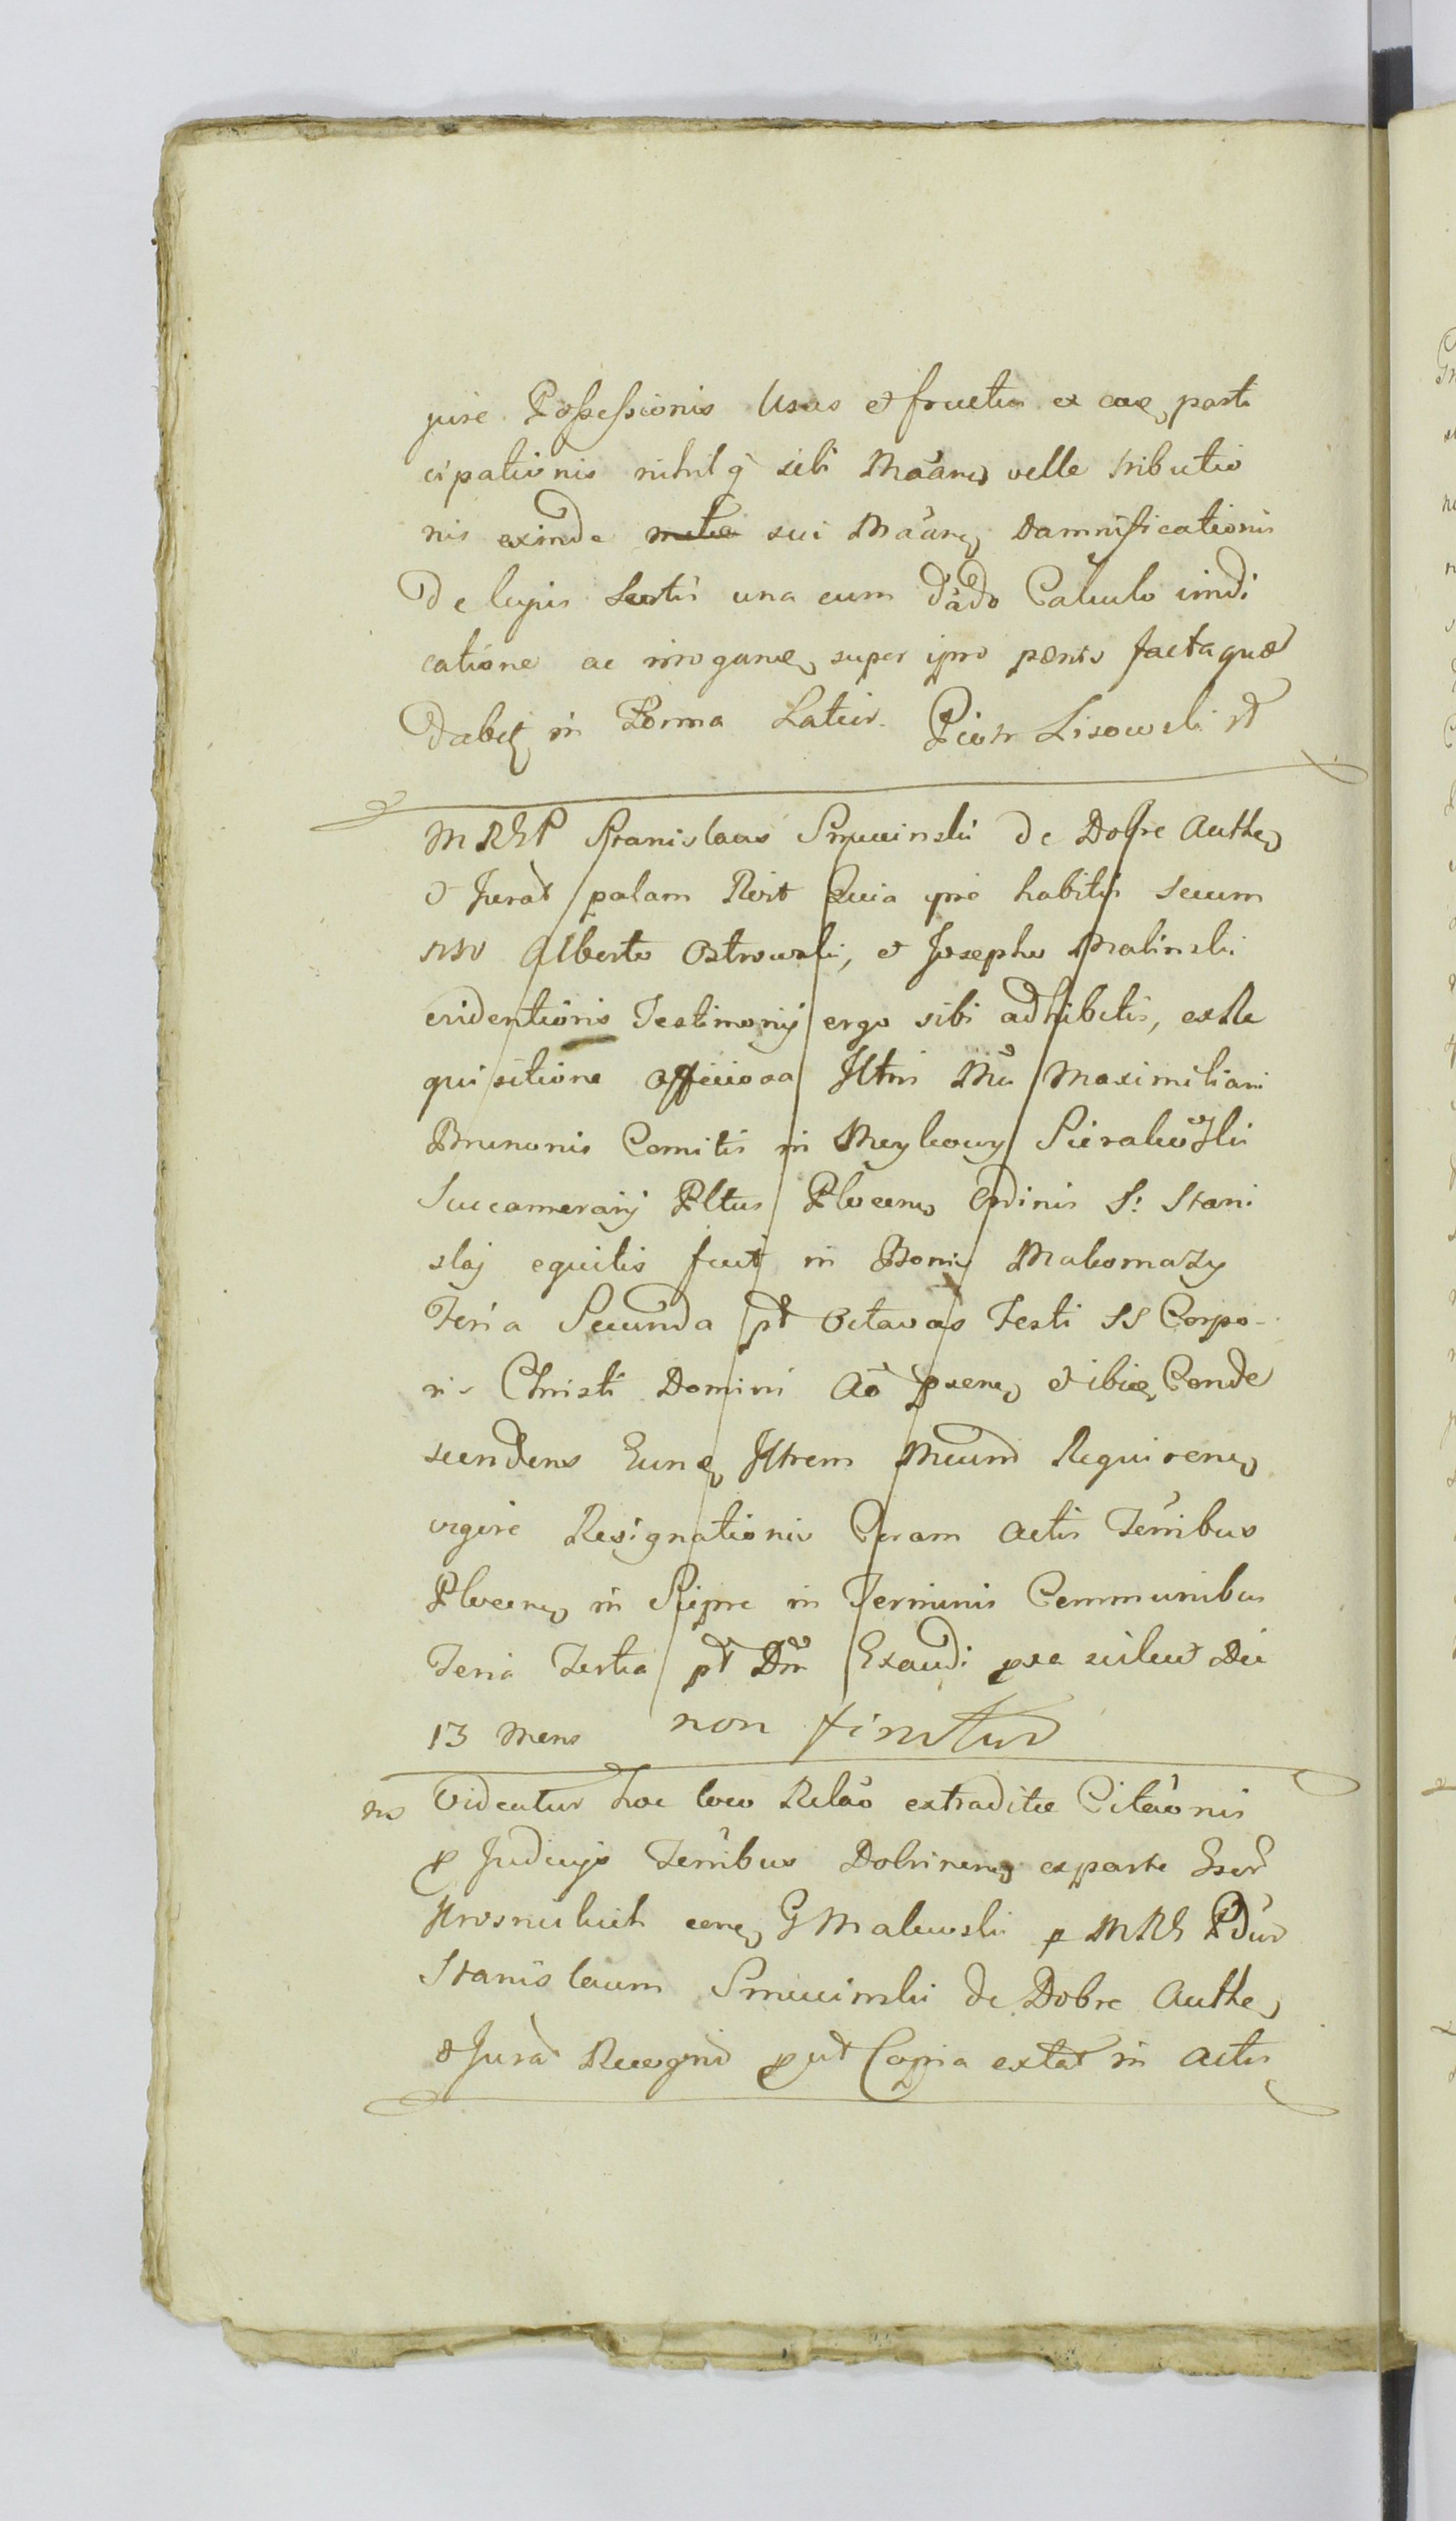 jure Possessionis Usus et fructus ex eaq parti
cipationis nihilq sibi Maane velle tributio
nis exinde sui Maane Damnificationis
De lupis Sertis una cum dando Calculo vindi
catione ac irrogane super ipso poenis factaque
Dabit in Forma Latior. Piotr Lisowski
MREP Stanislaus Smuiinski de Dobre Authe
et Jurat palam Rcit Quia ipse habitis secum
nso Alberto Ostrowski, et Josepho Malinski
evidentioris Testimonij ergo sibi adhibitis, ex Re
quisitione officiosa Illtris Mci Maximiliani
Brunonis Comitis in Meykowy Sierakowski
Succamerarij Pltus Plocens Ordinis S: Stani
slaj equitis fuit in Bonis Makomazy
Feria Secunda pt octavas Festi SS Corpo-
ris Christi Domini Ao psene et ibiq Conde
scendens Eunq Illtrem Mcum Requirens
vigore Resignationis Coram actis Terribus
Plocens in Sierpc in Terminis Communibus
Feria Tertia pt Dni Exaudi pxa scilicet Die
13 Mens non finitur
Videatur hoc loco Relao extraditae Citaonis
p Judicijs Terribus Dobrinens ex parte
Krosnickich cone G Makowski p MRE Pdur
Stanislaum Smuiinski de Dobre Authe
et Jurat Recognit put Copia extat in actis